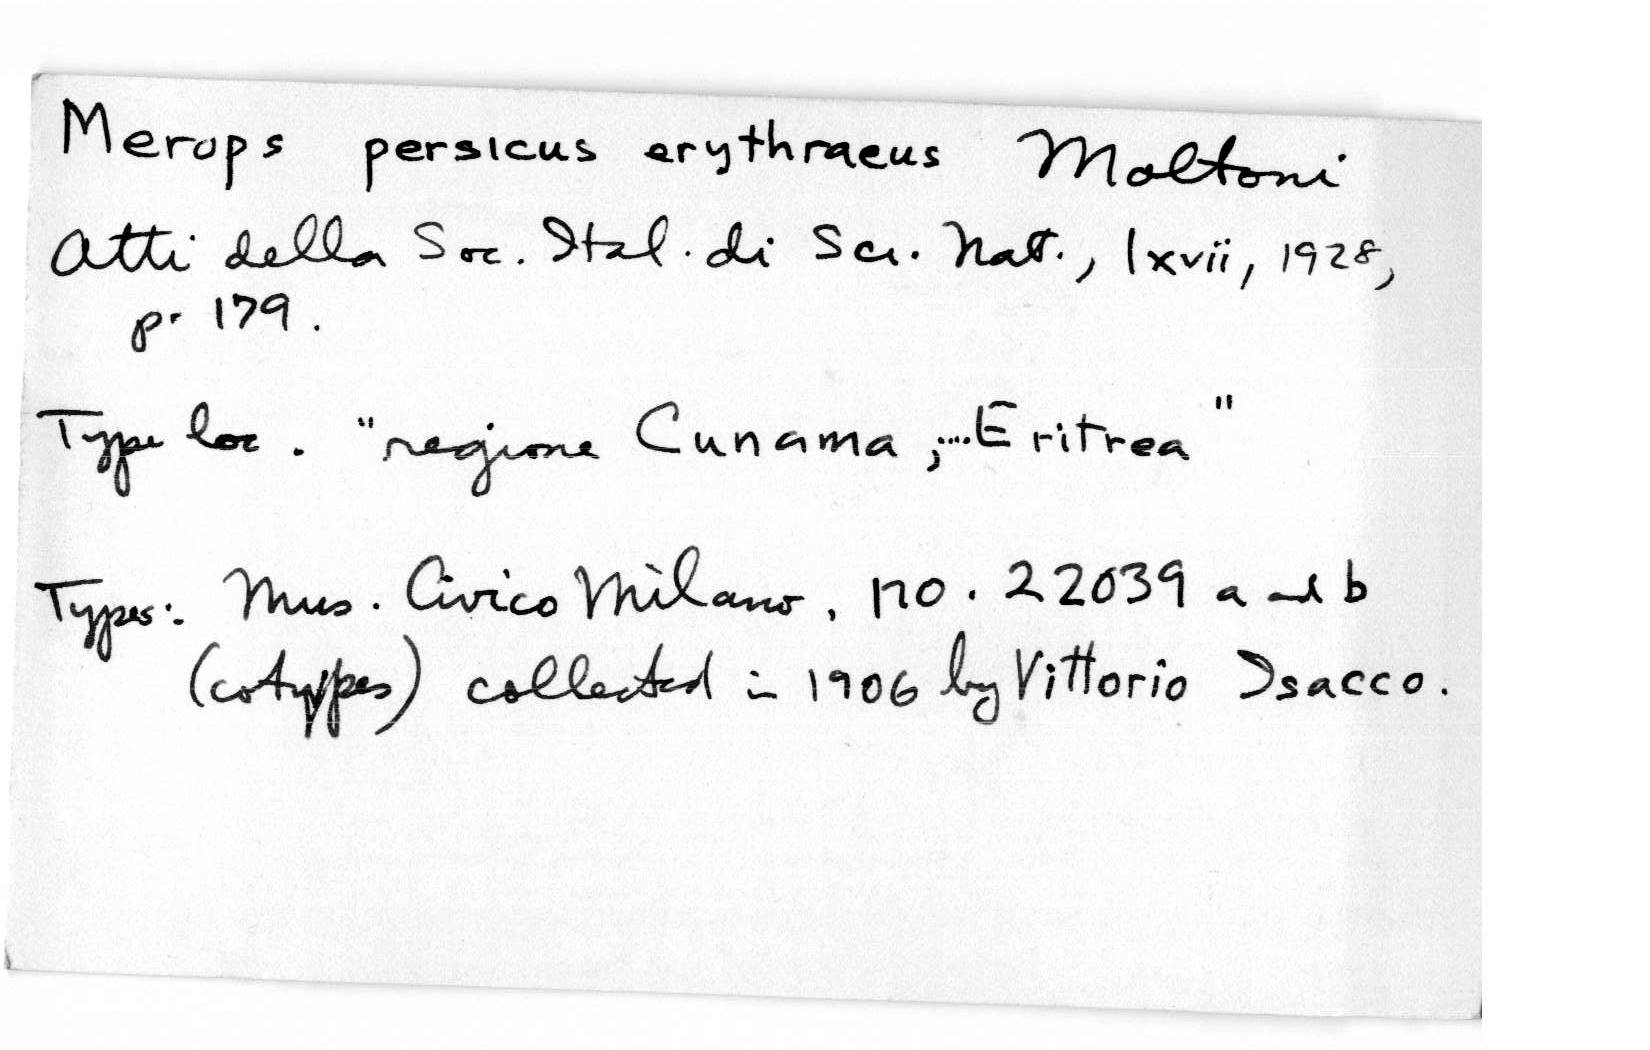 Merops persicus erythraeus Moltoni
Atti della Soc. Ital. di Sci. Nat., lxvii, 1928,
p. 179.
Type loc. "regione Cunama, ... Eritrea"
Types: Mus. Civico Milano, no. 22039 a and b
(cotypes) collected in 1906 by Vittorio Isacco.